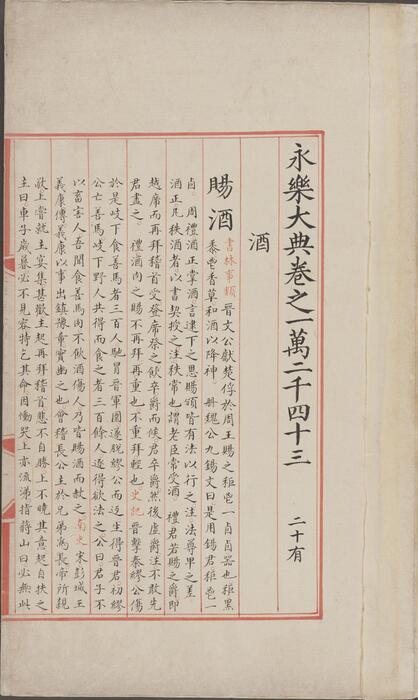 永樂大典卷之一萬二千四十三 二十有
酒
賜酒 書林事類 晉文公獻楚俘於周王賜之秬鬯一卣卣器也秬黑
黍鬯香草和酒以降神。冊魏公九錫文曰是用錫君秬鬯一
卣 周禮酒正掌酒言逮下之恩賜頒皆有法以行之注法尊卑之差
酒正凡秩酒者以書契授之注秩常也謂老臣常受酒。禮君若賜之爵即
越席而再拜稽首受登席祭之飲卒爵而俟君卒爵然後虛爵注不敢先
君盡之。禮酒肉之賜不再拜再重也不重拜輕也史記晉擊秦繆公傷
於是岐下食善馬者三百人馳冒晉軍圍遂脫繆公而返生得晉君初繆
公亡善馬岐下野人共得而食之者三百餘人逐得欲法之公曰君子不
以畜害人吾聞食善馬肉不飲酒傷人乃皆賜酒而赦之南史宋彭城王
義康傳義康以事出鎮豫章實幽之也會稽長公主於兄弟爲長帝所親
敬上嘗就主宴集甚歡主起再拜稽首悲不自勝上不曉其意起自扶之
主曰車子歲暮必不見容特乞其命因慟哭上亦流涕指蔣山曰必無此